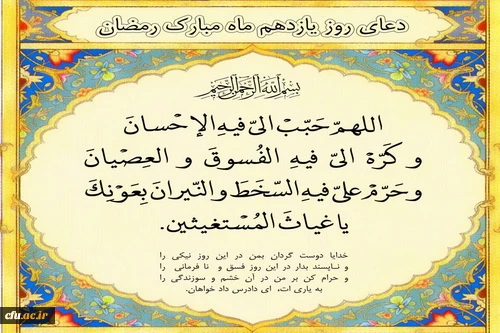 دعای روز یازدهم ماه مبارک رمضان
بسم الله الرحمن الرحیم
اللهمّ حَبّبْ الیّ فیهِ الإحْسانَ
و کَرّهْ الیّ فیهِ الفُسوقَ و العِصْیانَ
و حَرّمْ علیّ فیهِ السّخَطَ و النّیرانَ بِعَوْنِکَ
یا غیاثَ المُسْتغیثین.
خدایا دوست گردان بمن در این روز نیکی را
و ناپسند بدار در این روز فسق و نا فرمانی را
و حرام کن بر من در آن خشم و سوزندگی را
به یاری ات، ای دادرس داد خواهان.
cfu.ac.ir